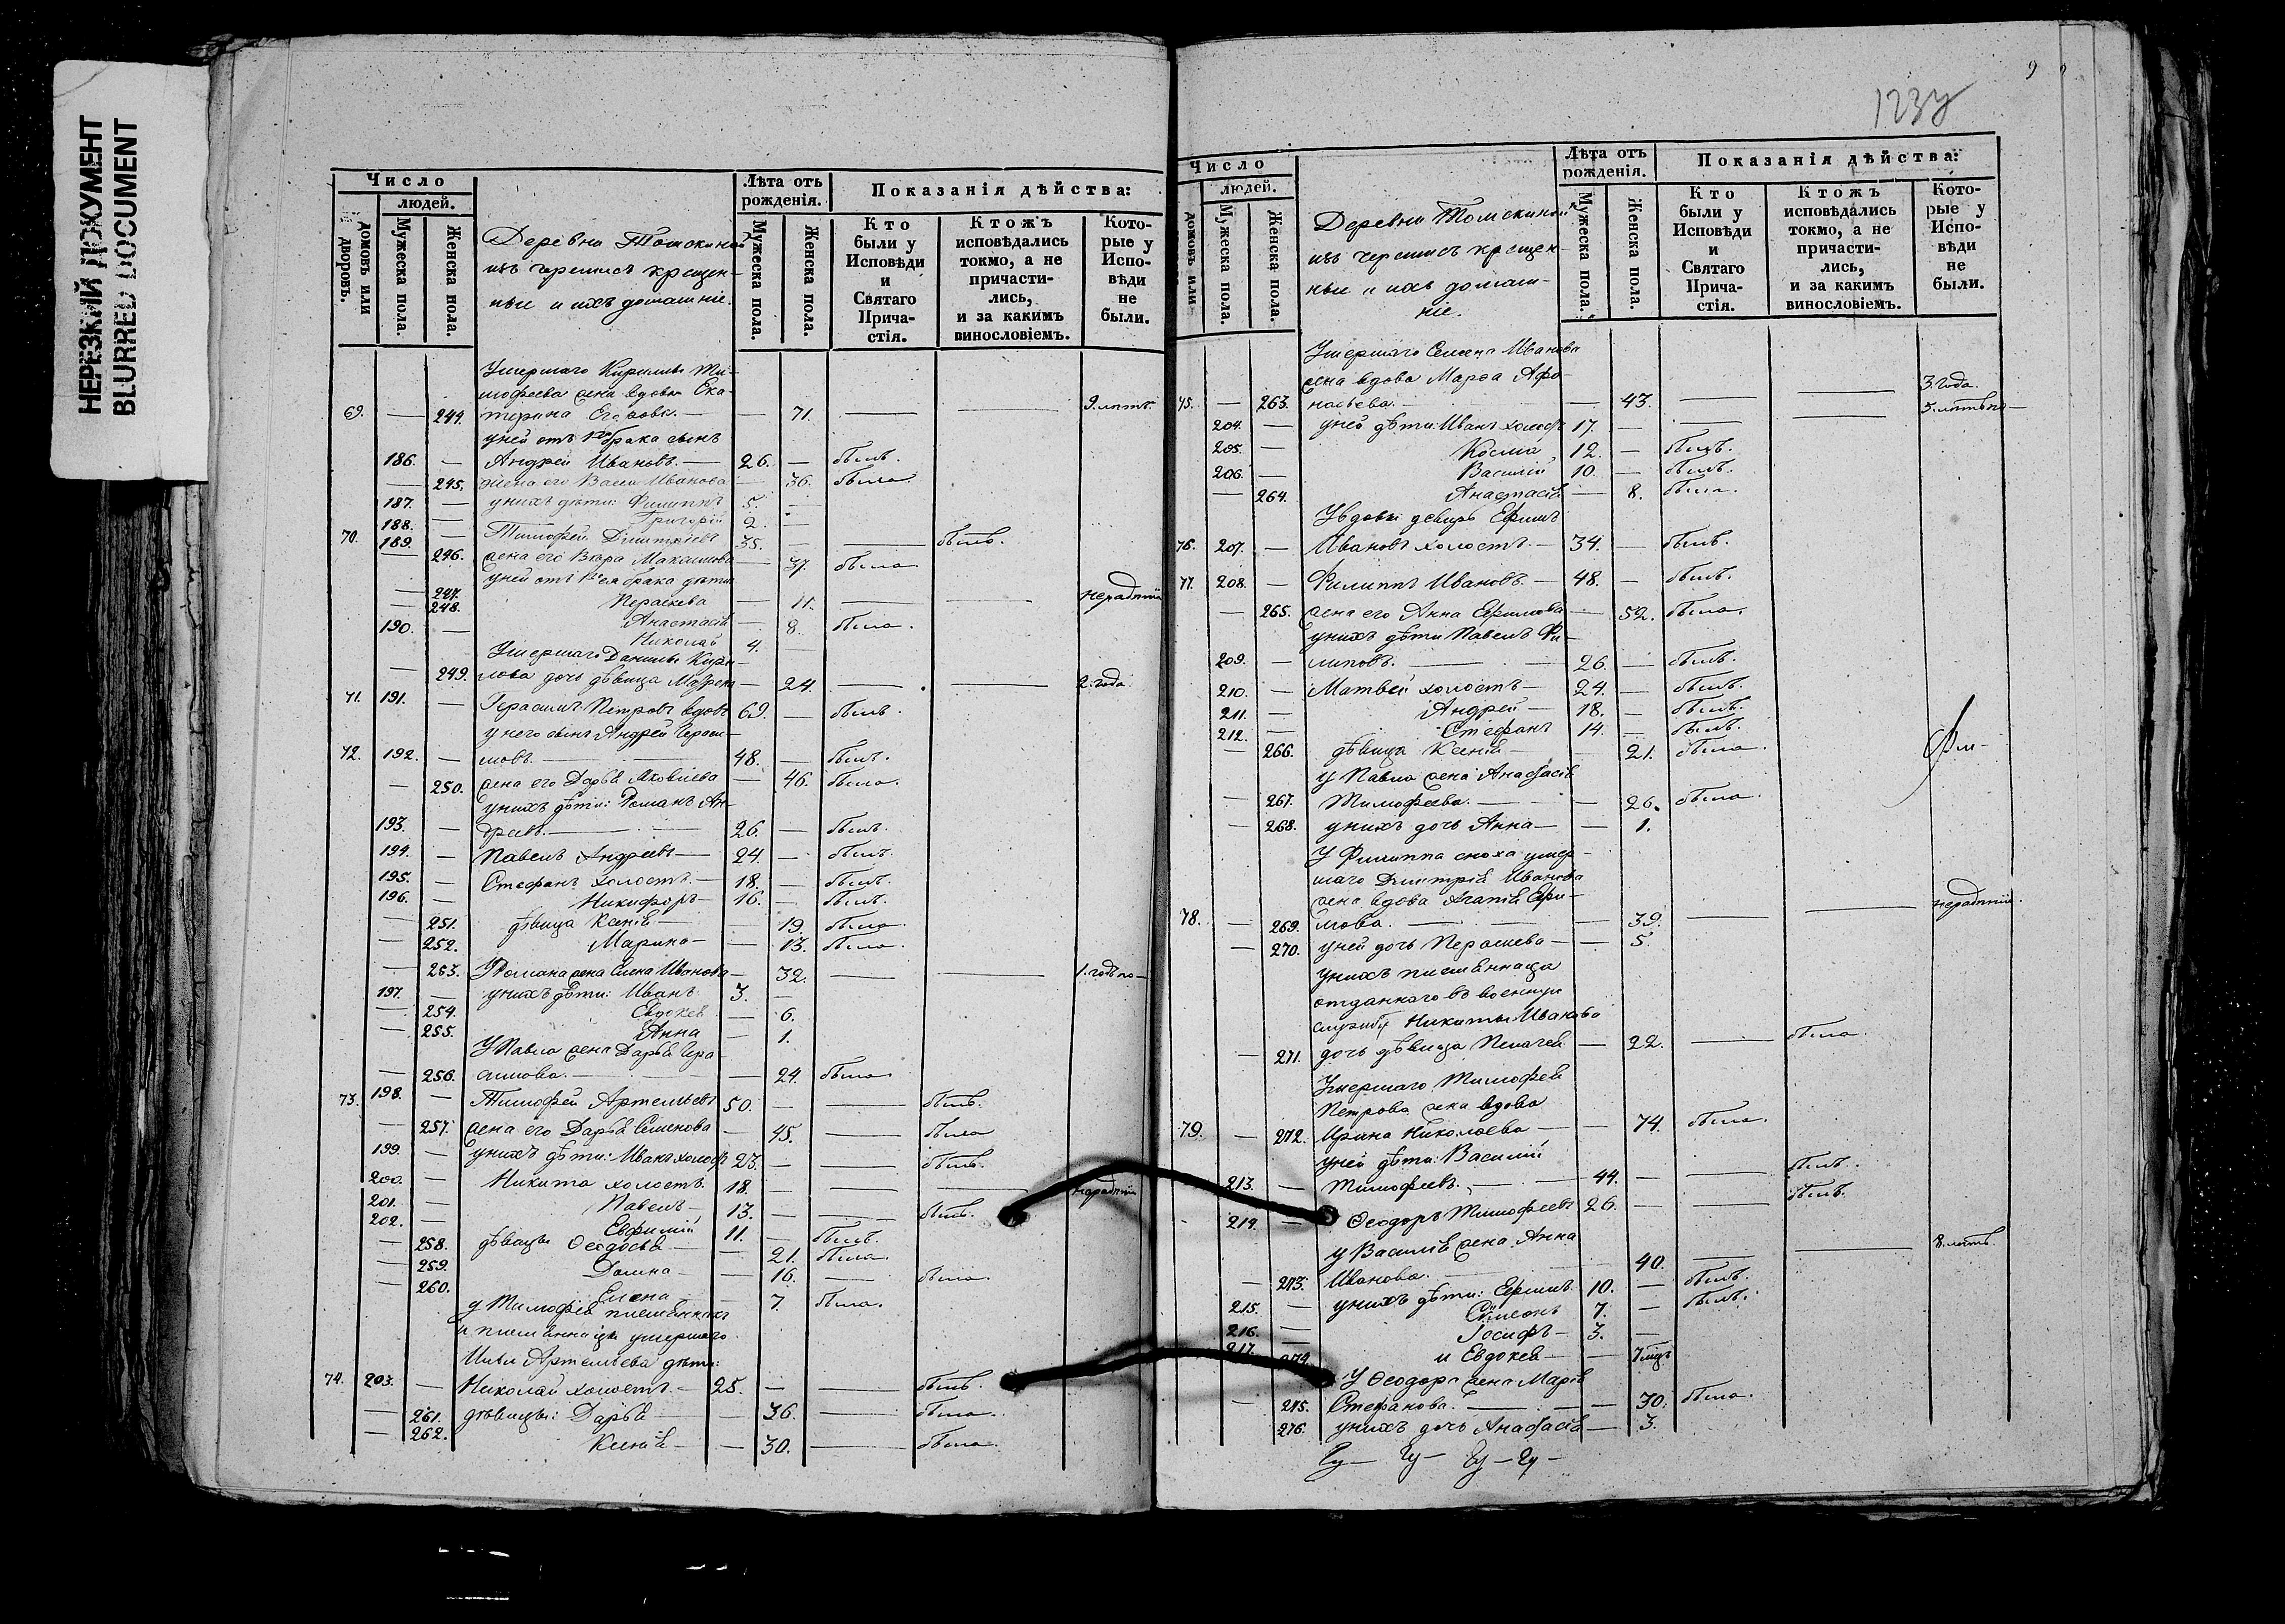 НЕРЕЗКИЙ ДОКУМЕНТ
BLURRED DOCUMENT
Число
людей.
домовъ или дворовъ.
Мужеска пола.
Женска пола.
Лѣта отъ рожденія.
Мужеска пола.
Женска пола.
Показанія дѣйства:
Кто были у Исповѣди и Святаго Прича-стія.
Ктожъ исповѣдались токмо, а не причасти-лись, и за какимъ винословіемъ.
Кото-рые у Испо-вѣди не были.
Деревни
изъ черемисъ крещен-
ные и ихъ домашніе.
Умершаго Кириллы Ти-
мофеева жена вдова Ека-
69. — 244. терина — 71. — 9. лѣтъ.
у ней отъ 1го брака сынъ
186. — Андрей Ивановъ. — 26. — былъ.
— 245. жена его Васса Иванова — 36. была
187. — у нихъ дѣти: Филиппъ 5. —
188. — Григорій 2. —
70. 189. — Тимофей Димитріевъ 35. — — былъ.
— 246. жена его Вѣра Максимова — 37. была
у ней отъ брака дѣти
— 247. Параскева — 11. — — нерадѣнію
— 248. Анастасія — 8. была.
190. — Николай 4. —
Умершаго Данилы Кири-
— 249. лова дочь дѣвица Матрена — 24. — — 2. года.
71. 191. — Герасимъ Петровъ вдовъ 69. — былъ.
у него сынъ Андрей Гераси-
72. 192. — мовъ. — 48. — былъ.
— 250. жена его Дарья Яковлева — 46. была.
у нихъ дѣти: Романъ Ан-
193. — дреевъ. — 26. — былъ.
194. — Павелъ Андреевъ — 24. — былъ.
195. — Стефанъ холостъ. — 18. — былъ.
196. — Никифоръ — 16. — былъ.
— 251. дѣвица Ксенія — 19. была
— 252. Марина — — 13. была.
— 253. Романа жена Елена Иванова — 32. — — 1. годъ по —
197. — у нихъ дѣти: Иванъ 3. —
— 254. Евдокея — 6.
— 255. Анна — 1.
У Павла жена Дарья Гера-
— 256. симова. — — 24. была
73. 198. — Тимофей Артемьевъ 50. — — былъ.
— 257. жена его Дарья Семенова — 45. — была
199. — у нихъ дѣти: Иванъ холостъ 23. — — былъ.
200. — Никита холостъ. 18. — — — нерадѣнію
201. — Павелъ — 13. — — былъ.
202. — Евфимій 11. — былъ.
— 258. дѣвицы Ѳеодосья — — 21. была
— 259. Домна — — 16. — была
— 260. Елена — — 7. была.
у Тимофея племянникъ
и племянницы умершаго
Ильи Артемьева дѣти:
74. 203. — Николай холостъ. — 25. — — былъ.
— 261. дѣвицы: Дарья — — 36. — была.
— 262. Ксенія — — 30. — была.
123у
9
Число
людей.
домовъ или
Мужеска пола.
Женска пола.
Лѣта отъ рожденія.
Мужеска пола.
Женска пола.
Показанія дѣйства:
Кто были у Исповѣди и Святаго Прича-стія.
Ктожъ исповѣдались токмо, а не причасти-лись, и за какимъ винословіемъ.
Кото-рые у Испо-вѣди не были.
Деревни
изъ черемисъ крещен-
ные и ихъ домаш-
ніе.
Умершаго Семена Иванова
жена вдова Марфа Афо-
75. — 263. насьева. — — 43. — — 3. года.
204. — у ней дѣти: Иванъ холостъ 17. — — — 3. лѣтъ по —
205. — Косма 12. — былъ.
206. — Василій 10. — былъ.
— 264. Анастасія — 8. была.
У вдовы деверь Ефимъ
76. 207. — Ивановъ холостъ. — 34. — былъ.
77. 208. — Филиппъ Ивановъ. — 48. — былъ.
— 265. жена его Анна Ефимова — 52. была.
у нихъ дѣти Павелъ Фи-
209. — липовъ. — 26. — былъ.
210. — Матвей холостъ — 24. — былъ.
211. — Андрей — 18. — былъ.
212. — Стефанъ 14. — былъ.
— 266. дѣвица Ксенія — 21. была.
у Павла жена Анастасія
— 267. Тимофеева. — — 26. была.
— 268. у нихъ дочь Анна — — 1.
У Филиппа сноха умер-
шаго Димитрія Иванова
жена вдова Агапія Ефи-
78. — 269. мова. — — 39. — — нерадѣнію.
— 270. у ней дочь Параскева — — 5.
у нихъ племянница
отданнаго въ военную
службу Никиты Иванова
— 271. дочь дѣвица Пелагея — 22. — была.
Умершаго Тимофея
Петрова жена вдова
79. — 272. Ирина Николаева — — 74. была.
у ней дѣти: Василій
213. — Тимофеевъ. — 44. — — былъ.
214. — Ѳеодоръ Тимофеевъ 26. — — былъ.
у Василія жена Анна
— 273. Иванова. — 40. — — 8. лѣтъ
215. — у нихъ дѣти: Ефимъ. 10. — былъ.
216. — Симеонъ 7. — былъ.
217. — Іосифъ — 3. —
274. и Евдокея — — 7 мцъ
У Ѳеодора жена Марія
— 275. Стефанова. — — 30. была.
276. у нихъ дочь Анастасія — 3.